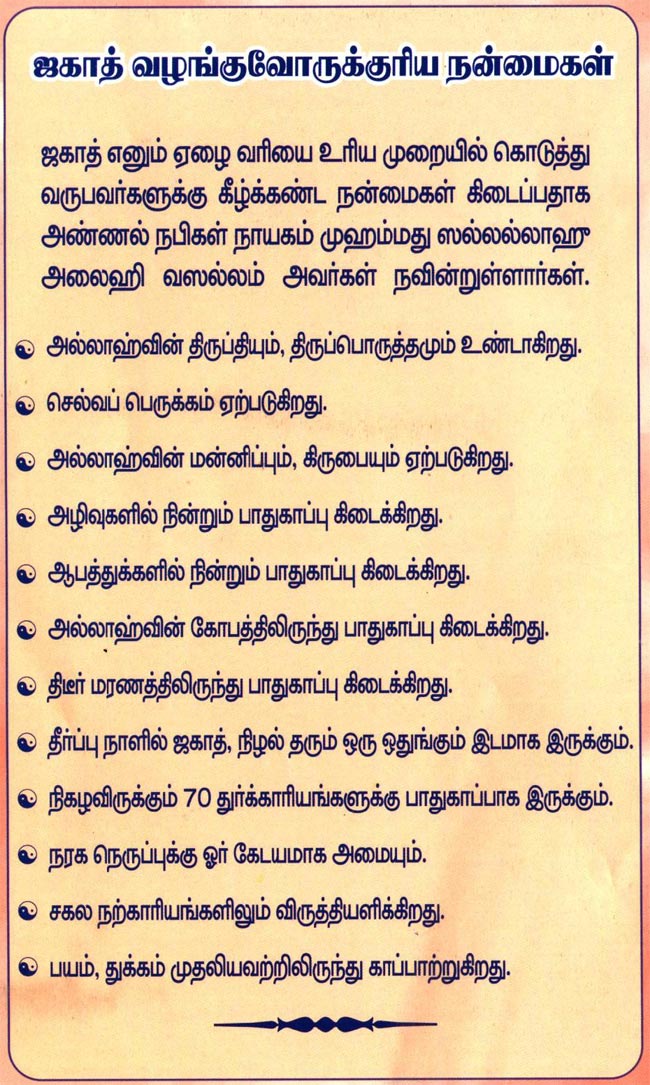 ஜகாத் வழங்குவோருக்குரிய நன்மைகள்
ஜகாத் எனும் ஏழை வரியை உரிய முறையில் கொடுத்து
வருபவர்களுக்கு கீழ்க்கண்ட நன்மைகள் கிடைப்பதாக
அண்ணல் நபிகள் நாயகம் முஹம்மது ஸல்லல்லாஹு
அலைஹி வஸல்லம் அவர்கள் நவின்றுள்ளார்கள்.
அல்லாஹ்வின் திருப்தியும், திருப்பொருத்தமும் உண்டாகிறது.
செல்வப் பெருக்கம் ஏற்படுகிறது.
அல்லாஹ்வின் மன்னிப்பும், கிருபையும் ஏற்படுகிறது.
அழிவுகளில் நின்றும் பாதுகாப்பு கிடைக்கிறது.
ஆபத்துக்களில் நின்றும் பாதுகாப்பு கிடைக்கிறது.
அல்லாஹ்வின் கோபத்திலிருந்து பாதுகாப்பு கிடைக்கிறது.
திடீர் மரணத்திலிருந்து பாதுகாப்பு கிடைக்கிறது.
தீர்ப்பு நாளில் ஜகாத், நிழல் தரும் ஒரு ஒதுங்கும் இடமாக இருக்கும்.
நிகழவிருக்கும் 70 துர்க்காரியங்களுக்கு பாதுகாப்பாக இருக்கும்.
நரக நெருப்புக்கு ஓர் கேடயமாக அமையும்.
சகல நற்காரியங்களிலும் விருத்தியளிக்கிறது.
பயம், துக்கம் முதலியவற்றிலிருந்து காப்பாற்றுகிறது.